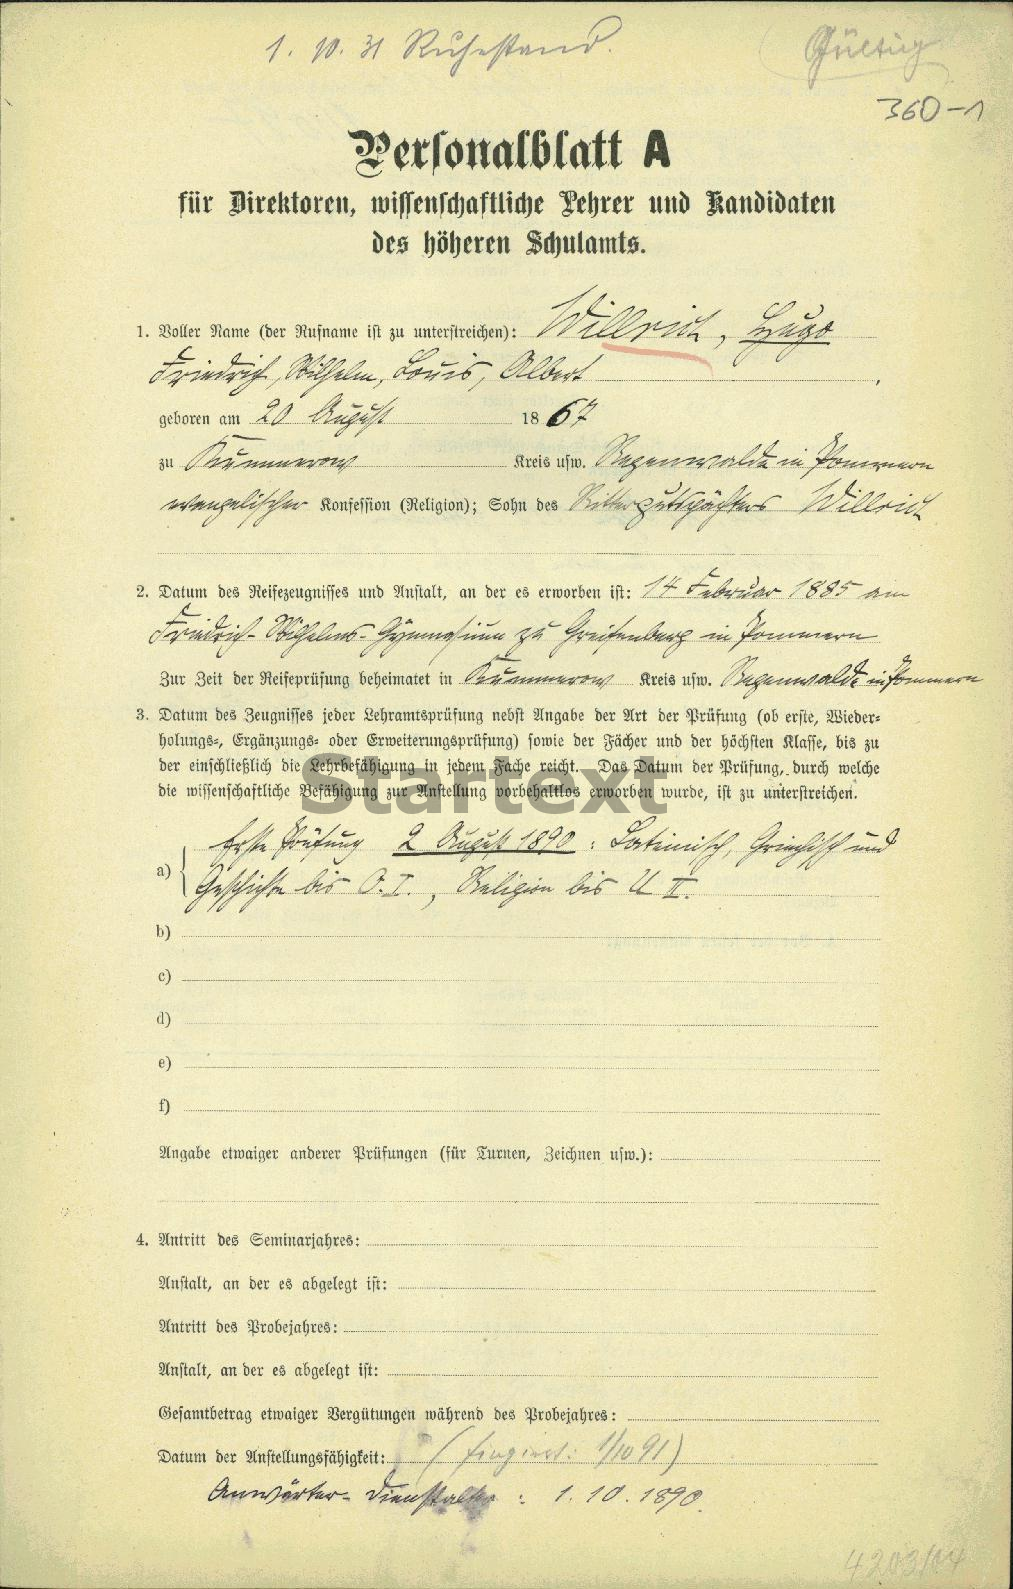 1. 10. 31 Ruhestand.
Gültig
360-1
Personalblatt A
für Direktoren, wissenschaftliche Lehrer und Kandidaten
des höheren Schulamts.
1. Voller Name (der Rufname ist zu unterstreichen): Willrich, Hugo
Friedrich, Wilhelm, Louis, Albert
geboren am 20 August 1867
zu Kummerow Kreis usw. Regenwalde in Pommern
evangelischer Konfession (Religion); Sohn des Rittergutspächters Willrich
2. Datum des Reifezeugnisses und Anstalt, an der es erworben ist: 14 Februar 1885 am
Friedrich-Wilhelms-Gymnasium zu Greifenberg in Pommern
Zur Zeit der Reifeprüfung beheimatet in Kummerow Kreis usw. Regenwalde in Pommern
3. Datum des Zeugnisses jeder Lehramtsprüfung nebst Angabe der Art der Prüfung (ob erste, Wieder-
holungs-, Ergänzungs- oder Erweiterungsprüfung) sowie der Fächer und der höchsten Klasse, bis zu
der einschließlich die Lehrbefähigung in jedem Fache reicht. Das Datum der Prüfung, durch welche
die wissenschaftliche Befähigung zur Anstellung vorbehaltlos erworben wurde, ist zu unterstreichen.
Startext
Erste Prüfung 2 August 1890: Lateinisch, Griechisch und
a) Geschichte bis O. I., Religion bis U II.
b)
c)
d)
e)
f)
Angabe etwaiger anderer Prüfungen (für Turnen, Zeichnen usw.):
4. Antritt des Seminarjahres:
Anstalt, an der es abgelegt ist:
Antritt des Probejahres:
Anstalt, an der es abgelegt ist:
Gesamtbetrag etwaiger Vergütungen während des Probejahres:
Datum der Anstellungsfähigkeit: (fingiert: 1/10 91)
Anwärter-Dienstalter: 1. 10. 1890.
4203/14